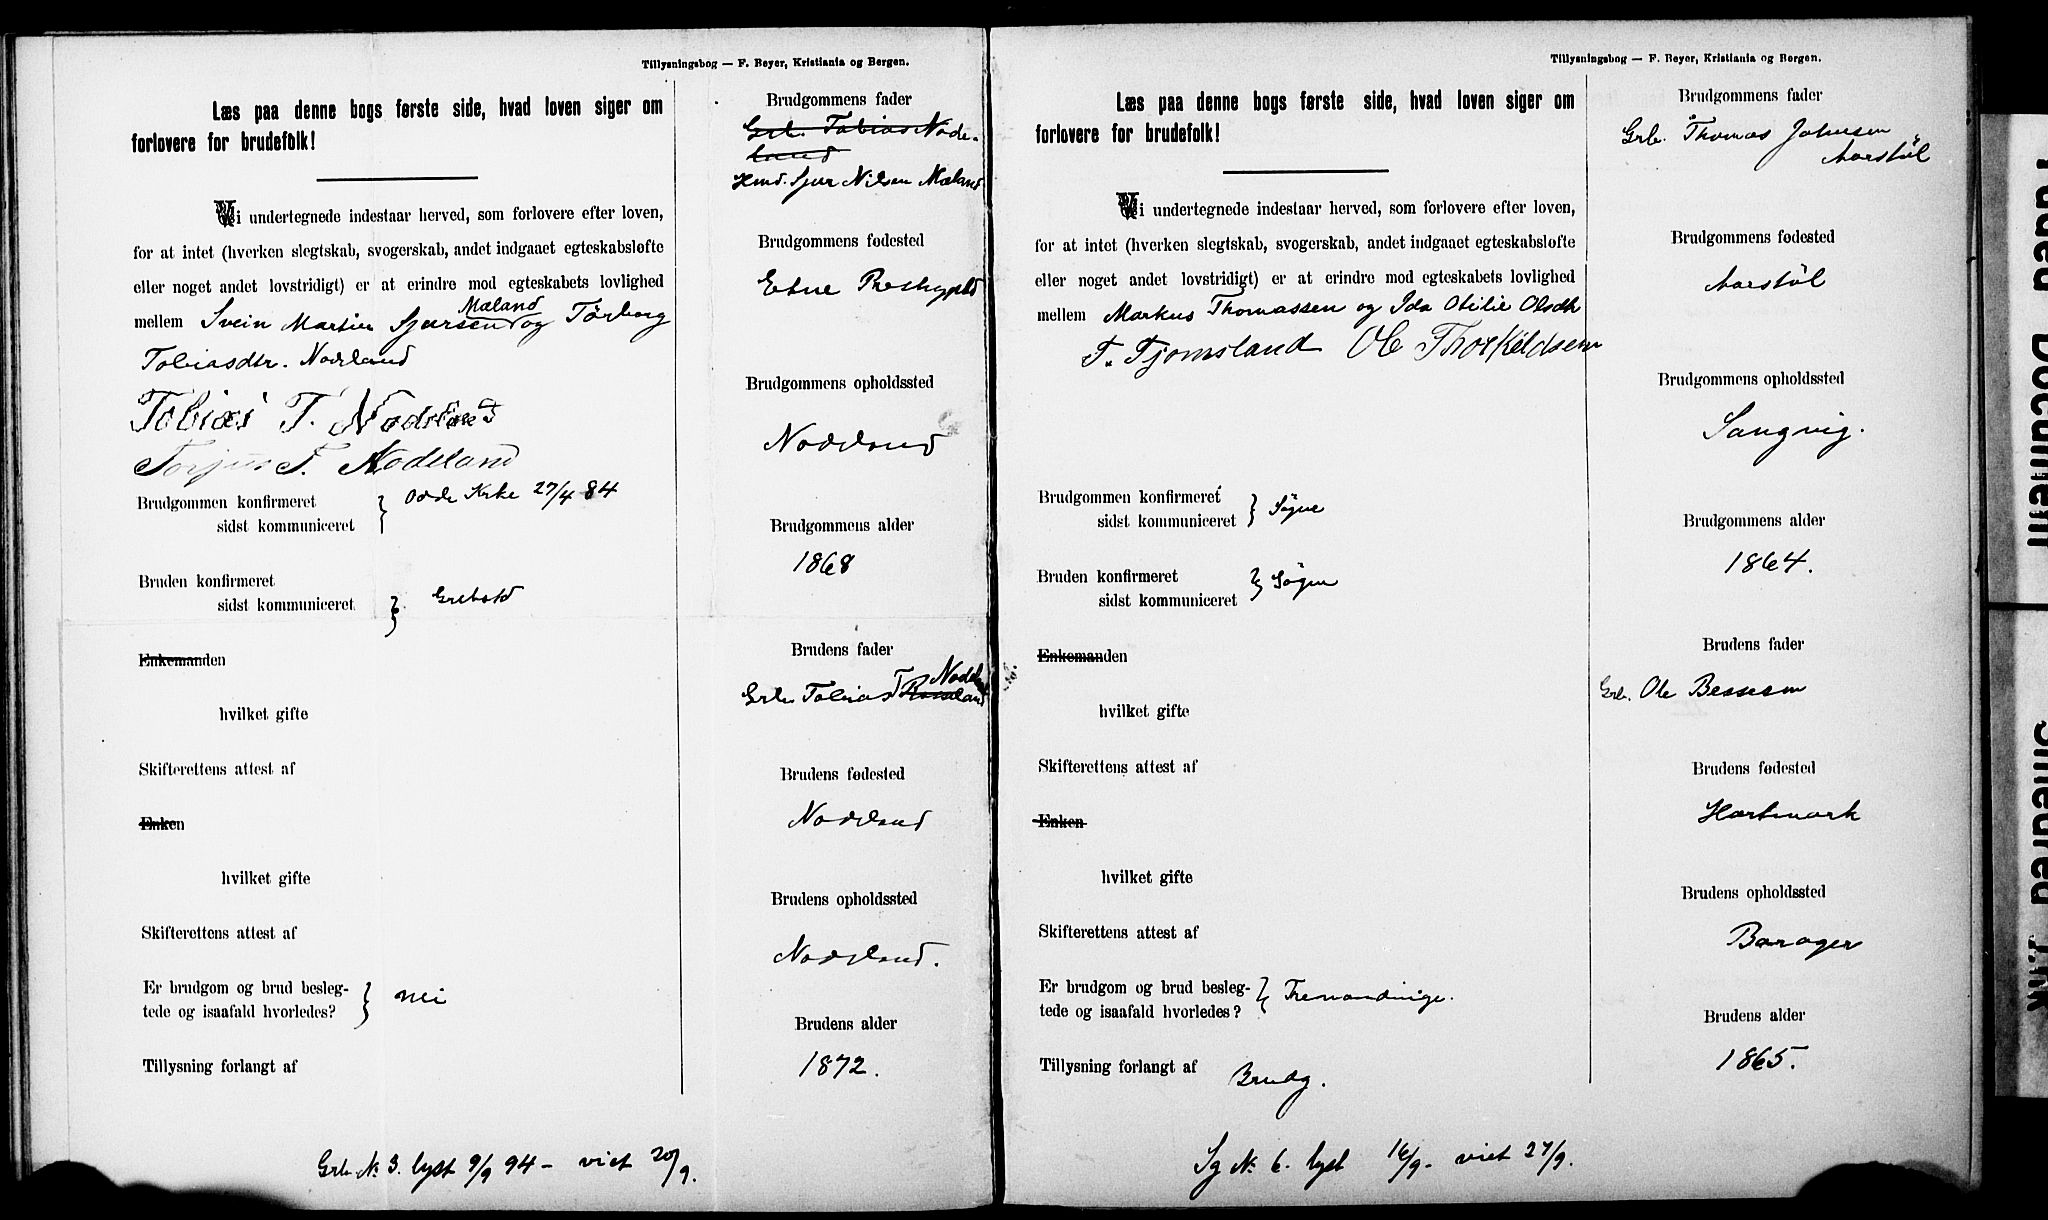 Tillysningsbog — F. Beyer, Kristiania og Bergen.
Læs paa denne bogs første side, hvad loven siger om
forlovere for brudefolk!
Vi undertegnede indestaar herved, som forlovere efter loven,
for at intet (hverken slegtskab, svogerskab, andet indgaaet egteskabsløfte
eller noget andet lovstridigt) er at erindre mod egteskabets lovlighed
Mæland
mellem Svein Martin Sjursen og Tørborg
Tobiasdtr. Nodeland
Tobias T. Nodeland
Torjus T. Nodeland
Brudgommen konfirmeret
sidst kommuniceret } Odde Kirke 27/4 84
Bruden konfirmeret
sidst kommuniceret }. Grebstd
Enkemanden
hvilket gifte
Skifterettens attest af
Enken
hvilket gifte
Skifterettens attest af
Er brudgom og brud besleg-
tede og isaafald hvorledes? } nei
Tillysning forlangt af
Brudgommens fader
Grb. Tobias Node-
land
Hmd. Sjur Nilsen Mæland
Brudgommens fødested
Etne Prestegjeld
Brudgommens opholdssted
Nodeland
Brudgommens alder
1868
Brudens fader
Grb. Tobias T. Nodeland
Brudens fødested
Nodeland
Brudens opholdssted
Nodeland.
Brudens alder
1872.
Grb. N. 3. lyst 9/9 94 – viet 20/9.
Tillysningsbog — F. Beyer, Kristiania og Bergen.
Læs paa denne bogs første side, hvad loven siger om
forlovere for brudefolk!
Vi undertegnede indestaar herved, som forlovere efter loven,
for at intet (hverken slegtskab, svogerskab, andet indgaaet egteskabsløfte
eller noget andet lovstridigt) er at erindre mod egteskabets lovlighed
mellem Markus Thomassen og Ida Otilie Olsdtr
T. Tjomsland Ole Thorkildsen
Brudgommen konfirmeret
sidst kommuniceret } Søgne
Bruden konfirmeret
sidst kommuniceret } Søgne
Enkemanden
hvilket gifte
Skifterettens attest af
Enken
hvilket gifte
Skifterettens attest af
Er brudgom og brud besleg-
tede og isaafald hvorledes? } Tremændinge.
Tillysning forlangt af Brudg.
Brudgommens fader
Grb. Thomas Johnsen
Aarstøl
Brudgommens fødested
Aarstøl
Brudgommens opholdssted
Langvig.
Brudgommens alder
1864.
Brudens fader
Grb. Ole Bessesen
Brudens fødested
Hartmark
Brudens opholdssted
Borøger
Brudens alder
1865.
Sg N. 6. lyst 16/9 – viet 27/9.